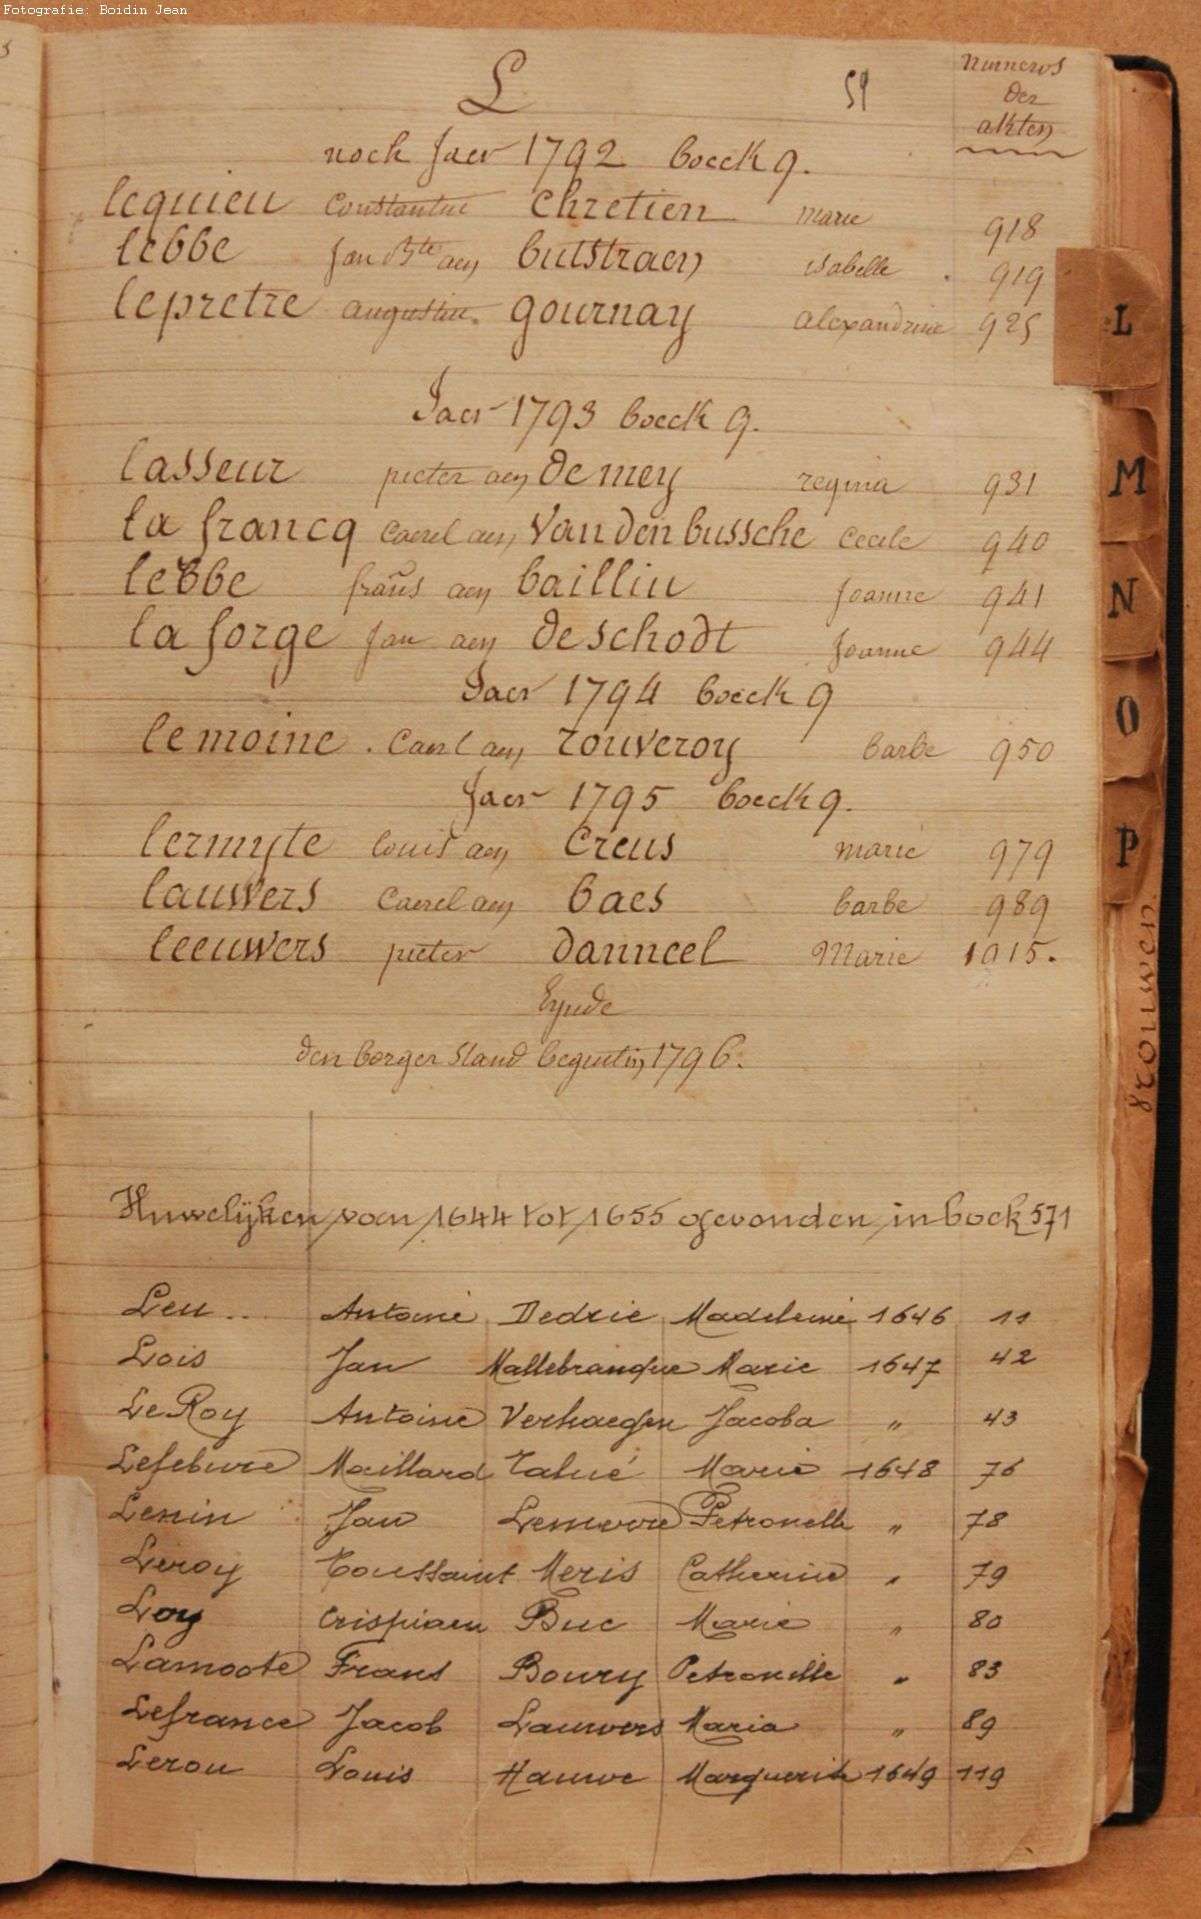 Fotografie: Boidin Jean
L 59
Numeros
der
akten
noch Jaer 1792 boeck 9.
lequieu Constantin Chretien marie 918
lebbe Jan Bte aen butstraen isabelle 919
lepretre augustin gournay alexandrine 925
Jaer 1793 boeck 9.
lasseur pieter aen Demey regina 931
la francq Caerel aen Vandenbussche Cecile 940
lebbe frans aen bailliu Joanne 941
la forge Jan aen Deschodt Joanne 944
Jaer 1794 boeck 9
lemoine Caerl aen rouveroy barbe 950
Jaer 1795 boeck 9.
lermyte louis aen Creus marie 979
lauwers Caerel aen baes barbe 989
leeuwers pieter danneel Marie 1015.
Eynde
den borger stand begint in 1796.
Huwelijken van 1644 tot 1655 gevonden in boek 571
Leu .. Antoine Dedrie Madeleine 1646 11
Lois Jan Mallebranque Marie 1647 42
LeRoy Antoine Verhaegen Jacoba " 43
Lefebure Maillard Talué Marie 1648 76
Lenin Jan Petronelle " 78
Leroy Toussaint Meris Catherine " 79
Loy Crispiaen Buc Marie " 80
Lamoote Frans Boury Petronille " 83
Lefrance Jacob Lauwers Maria " 89
Lerou Louis Hauwe Marguerite 1649 119
L
M
N
O
P
vrouwen